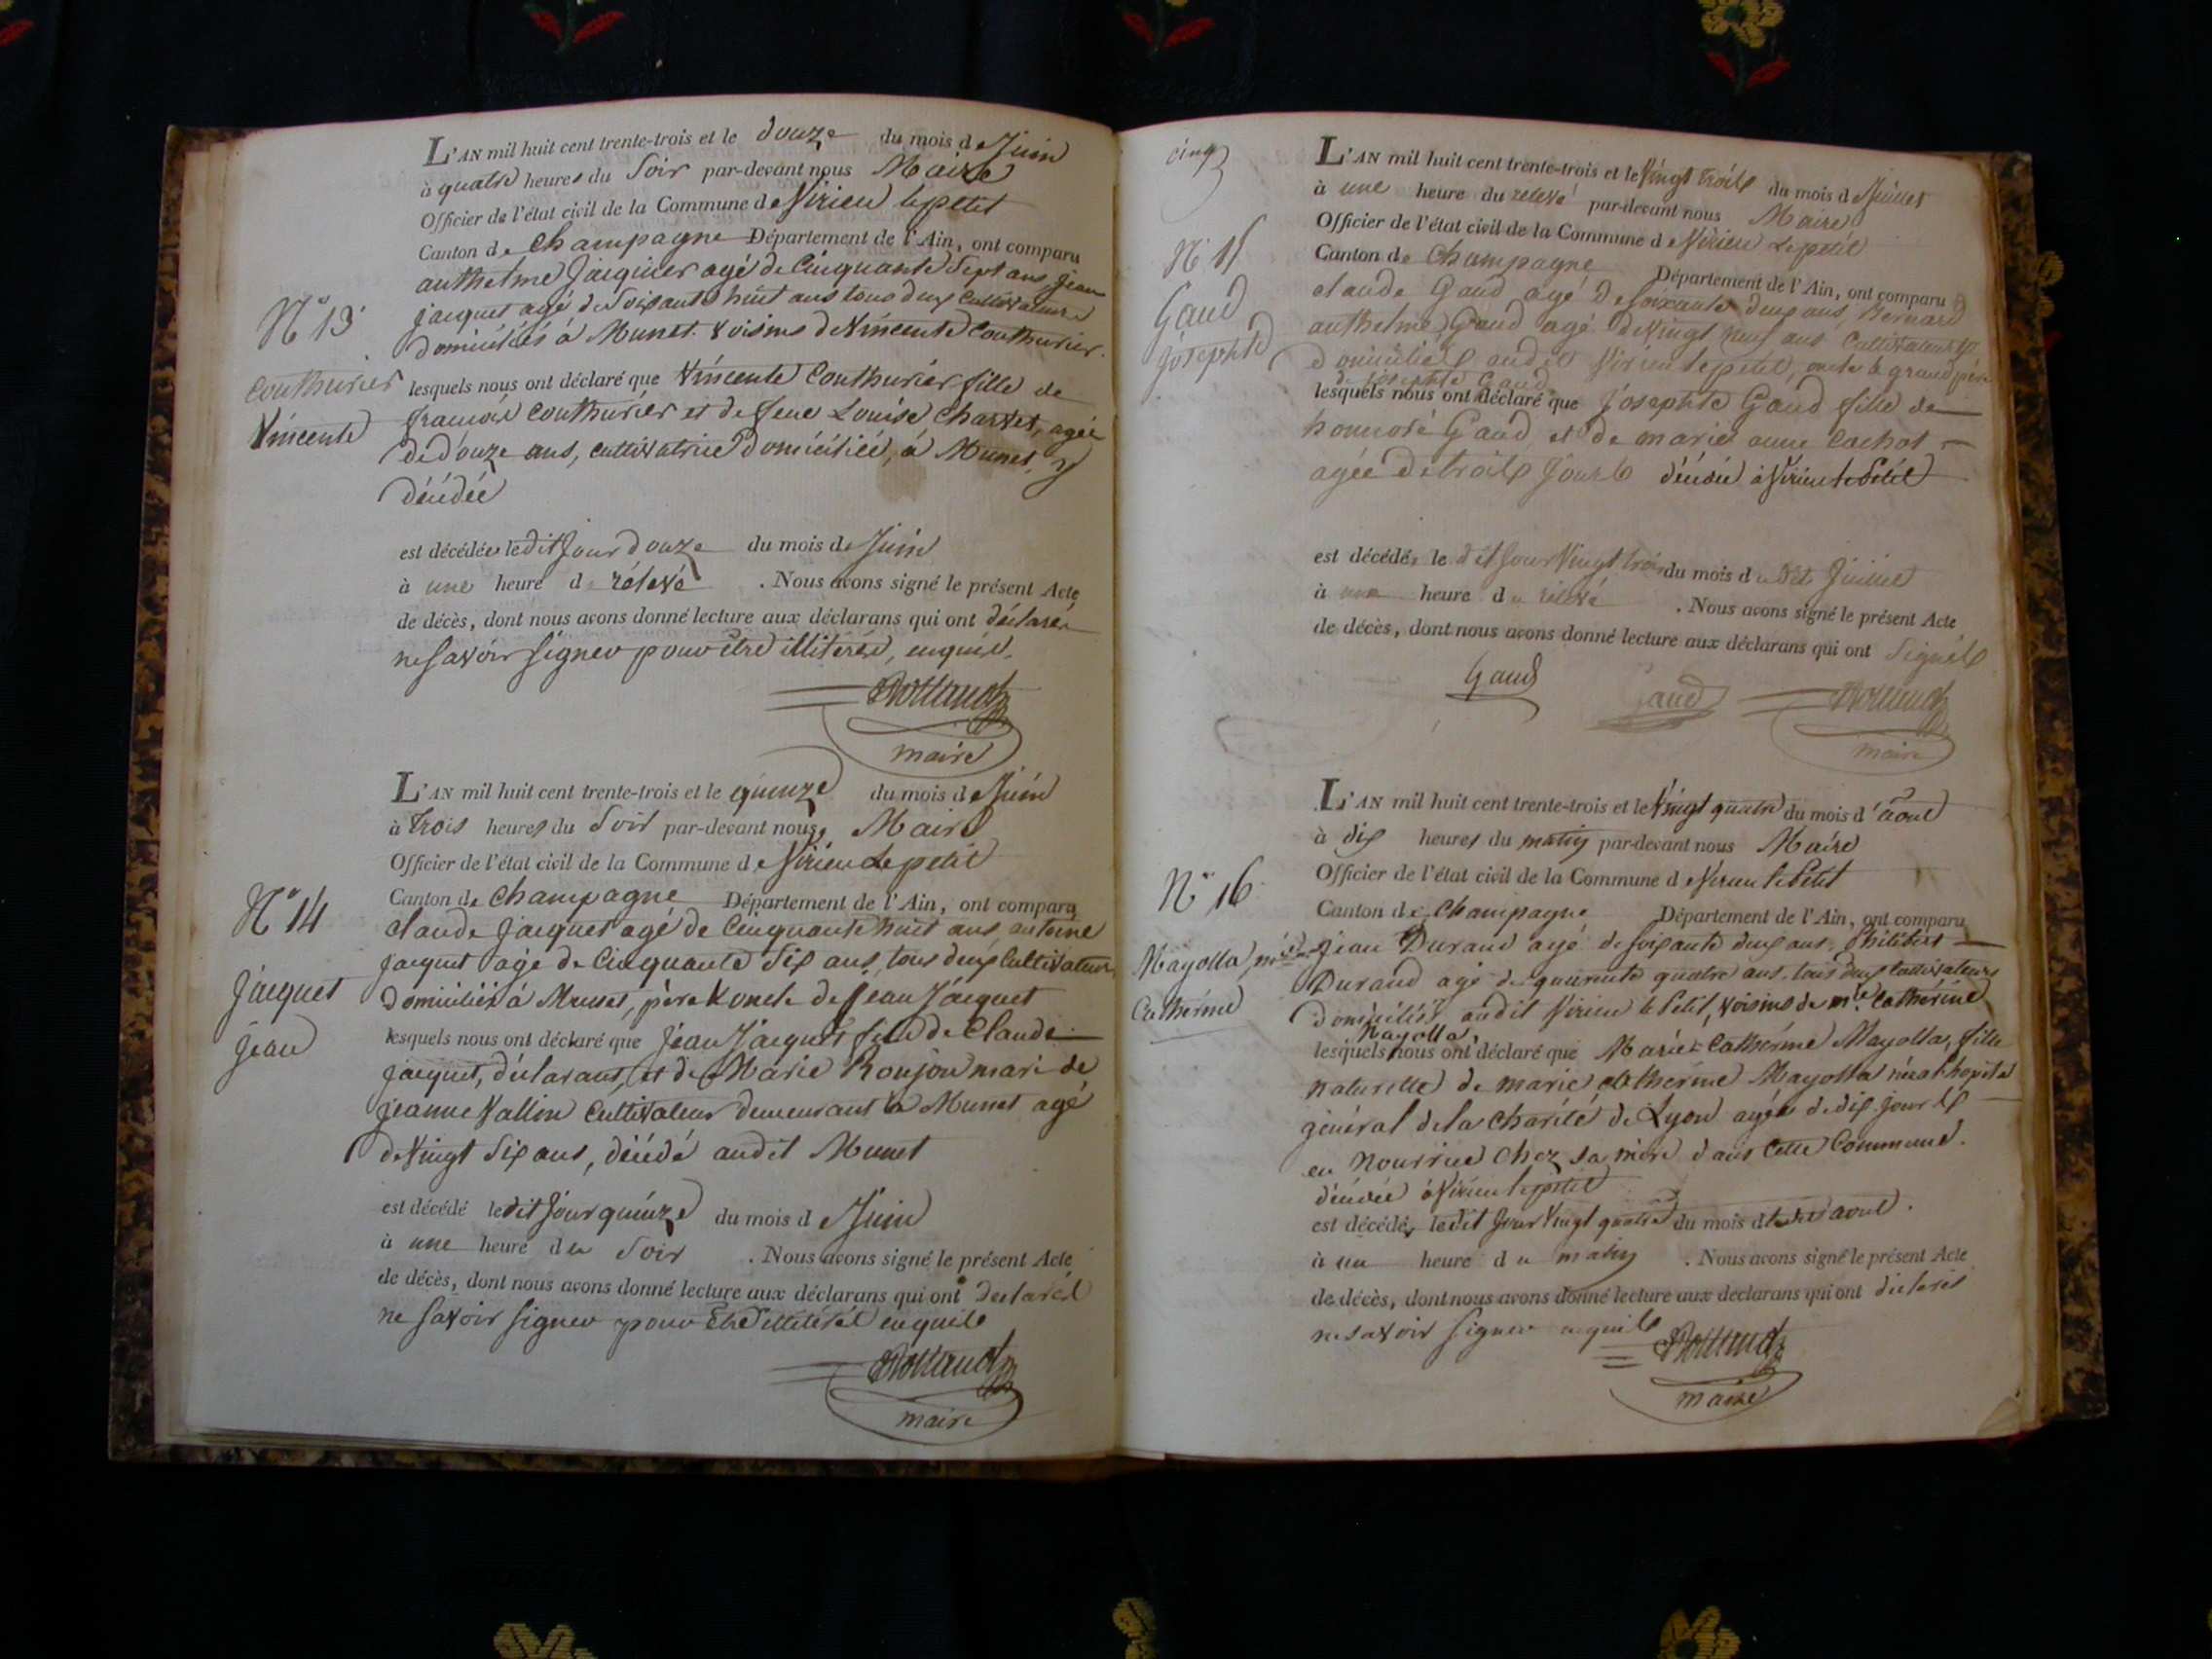 L'AN mil huit cent trente-trois et le douze du mois de Juin
à quatre heures du Soir par-devant nous Maire
Officier de l'état civil de la Commune de Virieu le petit
Canton de Champagne Département de l'Ain, ont comparu
authelme Jacquier agé de Cinquante Sept ans, Jean
jacquet agé de Soixante huit ans tous deux Cultivateurs
domiciliés à Munet voisins de Vincente Couthurier
N° 13
Couthurier
Vincente
lesquels nous ont déclaré que Vincente Couthurier fille de
françois Couthurier et de feue Louise Charvet, agée
de douze ans, cultivatrice domiciliée, à Munet, y
décédée
est décédée le dit Jour douze du mois de Juin
à une heure de rélevé . Nous avons signé le présent Acte
de décès, dont nous avons donné lecture aux déclarans qui ont déclarés
ne Savoir Signer pour être illitérés, enquis.
maire
L'AN mil huit cent trente-trois et le quinze du mois de Juin
à Trois heures du Soir par-devant nous, Maire
Officier de l'état civil de la Commune de Virieu Le petit
Canton de Champagne Département de l'Ain, ont comparu
N° 14
Jacquet
Jean
claude Jacquet agé de Cinquante huit ans, antoine
jacquet agé de Cinquante Six ans, tous deux Cultivateurs
domiciliés à Munet, père & oncle de Jean Jacquet
lesquels nous ont déclaré que Jean Jacquet fils de Claude
jacquet, déclarant, et de Marie Roujon mari de
jeanne Vallin Cultivateur demeurant à Munet agé
de Vingt Six ans, décédé audit Munet
est décédé le dit Jour quinze du mois de Juin
à une heure du Soir . Nous avons signé le présent Acte
de décès, dont nous avons donné lecture aux déclarans qui ont déclarés
ne Savoir Signer pour Etre illitérés enquis
maire
cinq
L'AN mil huit cent trente-trois et le Vingt Trois du mois de Juillet
à une heure du relevé par-devant nous Maire
Officier de l'état civil de la Commune de Virieu Le petit
Canton de Champagne Département de l'Ain, ont comparu
N° 15
Gaud
josephte
claude Gaud agé de Soixante deux ans, Bernard
authelme Gaud agé de Vingt neuf ans Cultivateurs
domiciliés audit Virieu le petit, oncle & grand père
de josephte Gaud
lesquels nous ont déclaré que Josephte Gaud fille de
honnoré Gaud et de marie anne Cachot
agée de trois Jours décédée à Virieu le Petit
est décédée le dit Jour Vingt trois du mois de dit Juillet
à une heure de relevé . Nous avons signé le présent Acte
de décès, dont nous avons donné lecture aux déclarans qui ont Signés
Gaud Gaud
maire
L'AN mil huit cent trente-trois et le Vingt quatre du mois d'aout
à dix heures du matin par-devant nous Maire
Officier de l'état civil de la Commune de Virieu le Petit
Canton de Champagne Département de l'Ain, ont comparu
N° 16
Mayolla, Mie
Catherine
Jean Durand agé de soixante deux ans, Philibert
Durand agé de quarante quatre ans tous deux Cultivateurs
domiciliés audit Virieu le Petit, voisins de Mie Cathérine
Mayolla,
lesquels nous ont déclaré que Marie Cathérine Mayolla, fille
naturelle de marie catherine Mayolla née à l'hopital
général de la Charité de Lyon agée de dix jours
en nourrice Chez sa mère dans cette Commune.
décédée à Virieu le petit
est décédée le dit Jour Vingt quatre du mois d'aout.
à un heure du matin . Nous avons signé le présent Acte
de décès, dont nous avons donné lecture aux déclarans qui ont déclarés
ne savoir Signer enquis
maire